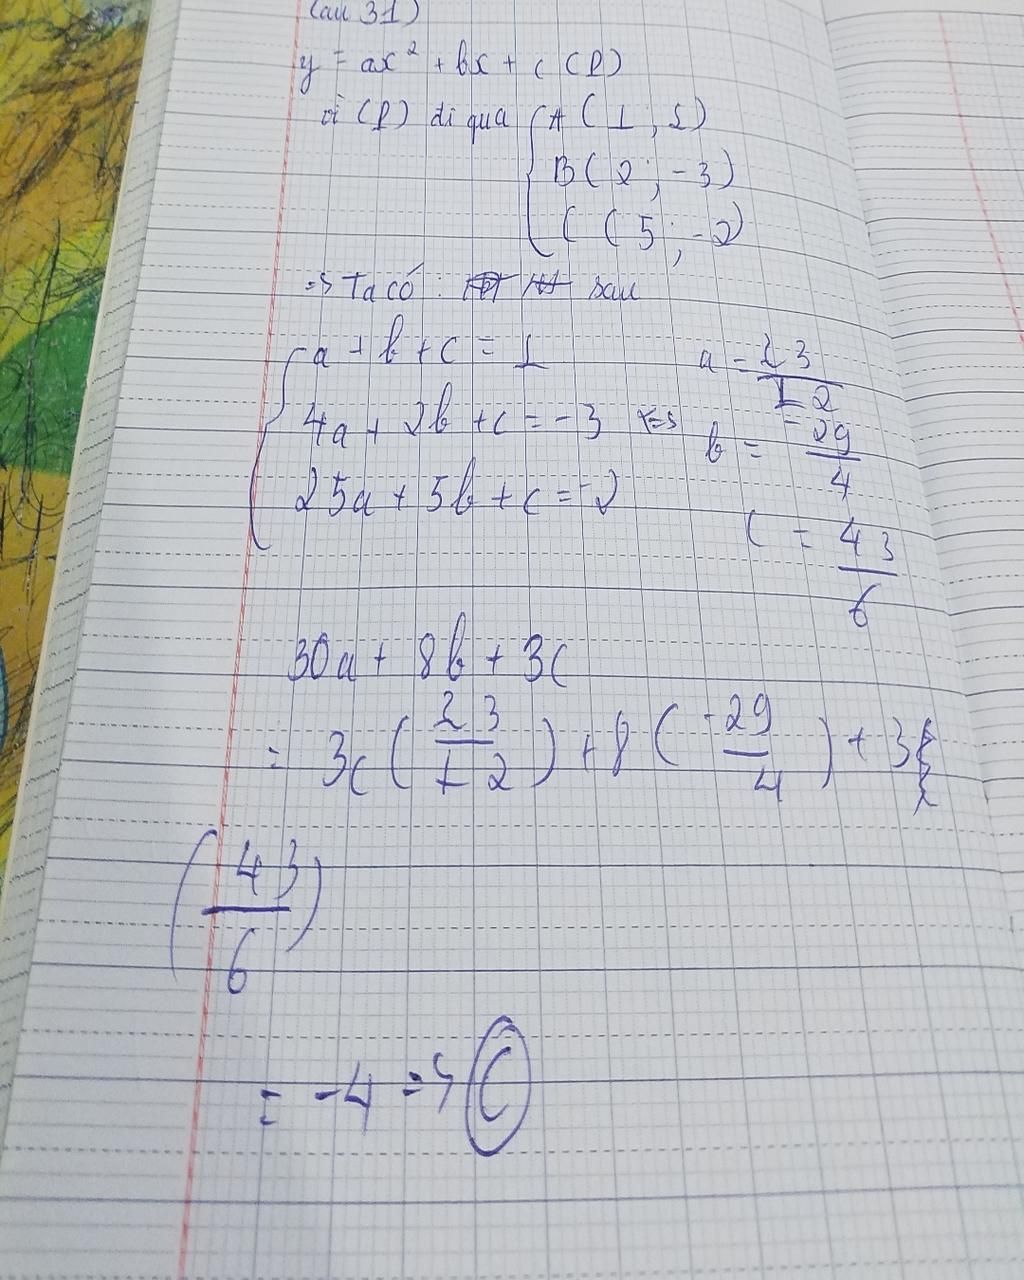 Câu 31)
y = ax² + bx + c (P)
vì (P) đi qua { A ( 1 ; 1 )
B ( 2 ; -3 )
C ( 5 ; -2 )
=> Ta có : sau
a + b + c = 1 a = 23/12
4a + 2b + c = -3 <=> b = -29/4
25a + 5b + c = -2
c = 43/6
30a + 8b + 3c
= 30 ( 23/12 ) + 8 ( -29/4 ) + 3
( 43/6 )
= -4 => C